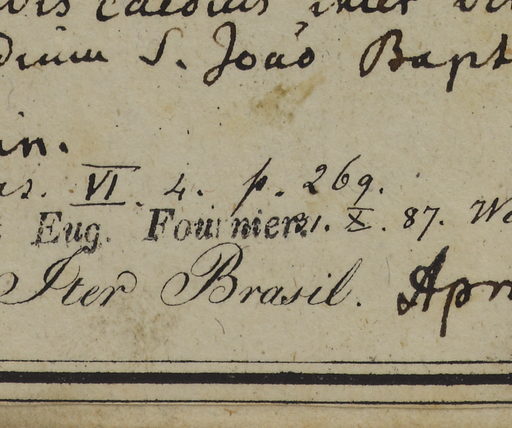 caedius inter
dium S. João Bapt
in.
as. VI. 4. p. 269.
Eug. Fournier. 31. X. 87. Wa
Iter Brasil. Apri